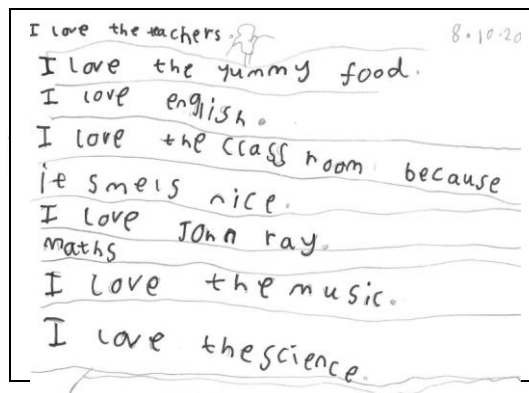 I love the teachers. 8.10.20
I love the yummy food.
I love english.
I love the class room because
it smels nice.
I love John ray.
maths
I love the music.
I love the science.